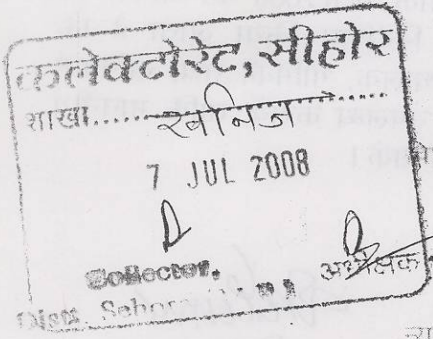 कलेक्टोरेट, सीहोर
शाखा.......खनिज.......
7 JUL 2008
Collector,
अधीक्षक
Distt. Sehore